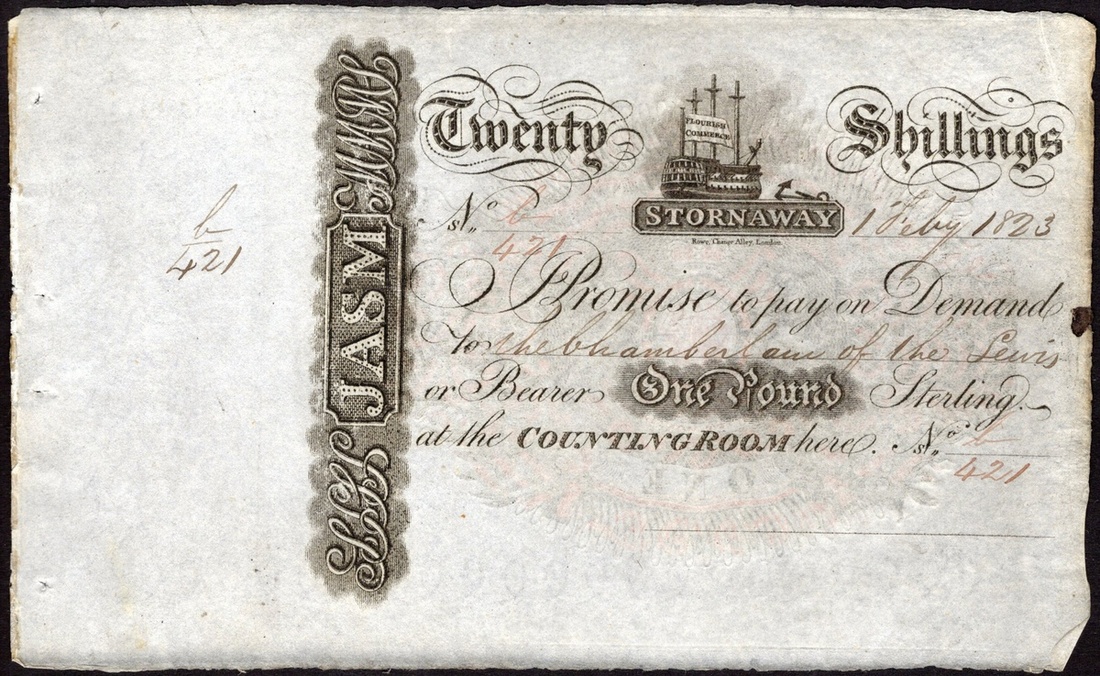 Twenty Shillings
FLOURISH
COMMERCE
STORNAWAY
Rowe, Change Alley, London.
No. b/421
1 Feby 1823
I Promise to pay on Demand
To the Chamberlain of the Lewis
or Bearer One Pound Sterling
at the COUNTING ROOM here. No. b/421
b/421
JASM
ONE